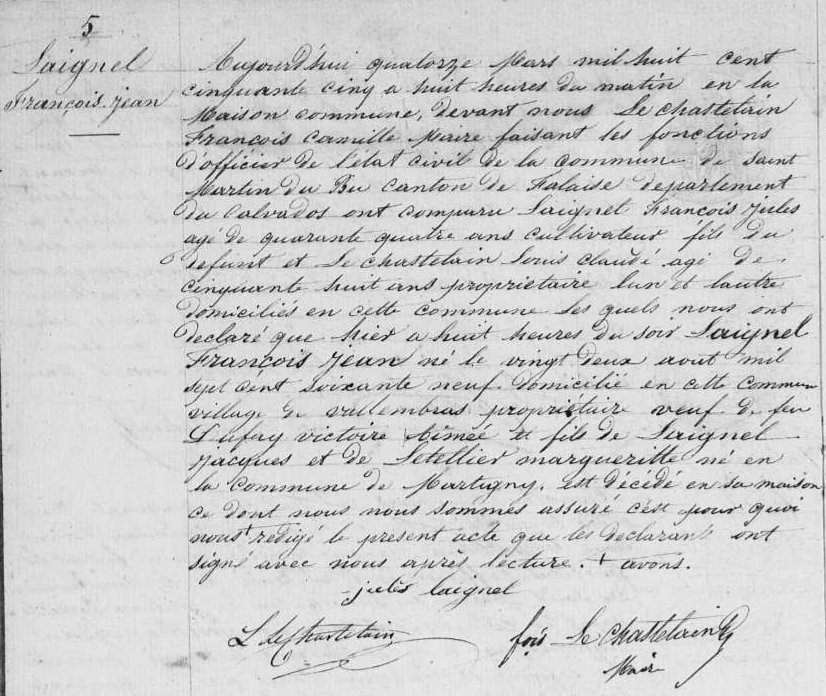 5
Laignel
François-jean
Aujourd'hui quatorze Mars mil huit cent
cinquante cinq a huit heures du matin en la
Maison commune, devant nous Le chastelain
François camille Maire faisant les fonctions
d'officier de l'état civil de la commune de saint
Martin du Bu canton de Falaise departement
du calvados ont comparu Laignel François jules
agé de quarante quatre ans cultivateur fils du
defunt et Le chastelain Louis claude agé de
cinquante huit ans propriétaire lun et lautre
domiciliés en cette commune les quels nous ont
declaré que hier a huit heures du soir Laignel
François jean né le vingt deux aout mil
sept cent soixante neuf domicilié en cette commune
village de vallembras propriétaire veuf de feu
Dufay victoire Aimée et fils de Laignel
jacques et de Letellier margueritte né en
la commune de Martigny. est décédé en sa maison
ce dont nous nous sommes assuré c'est pour quoi
nous + redigé le present acte que les declarants ont
signé avec nous après lecture. + avons.
jules laignel
L LeChastelain
fois Le chastelain
Maire